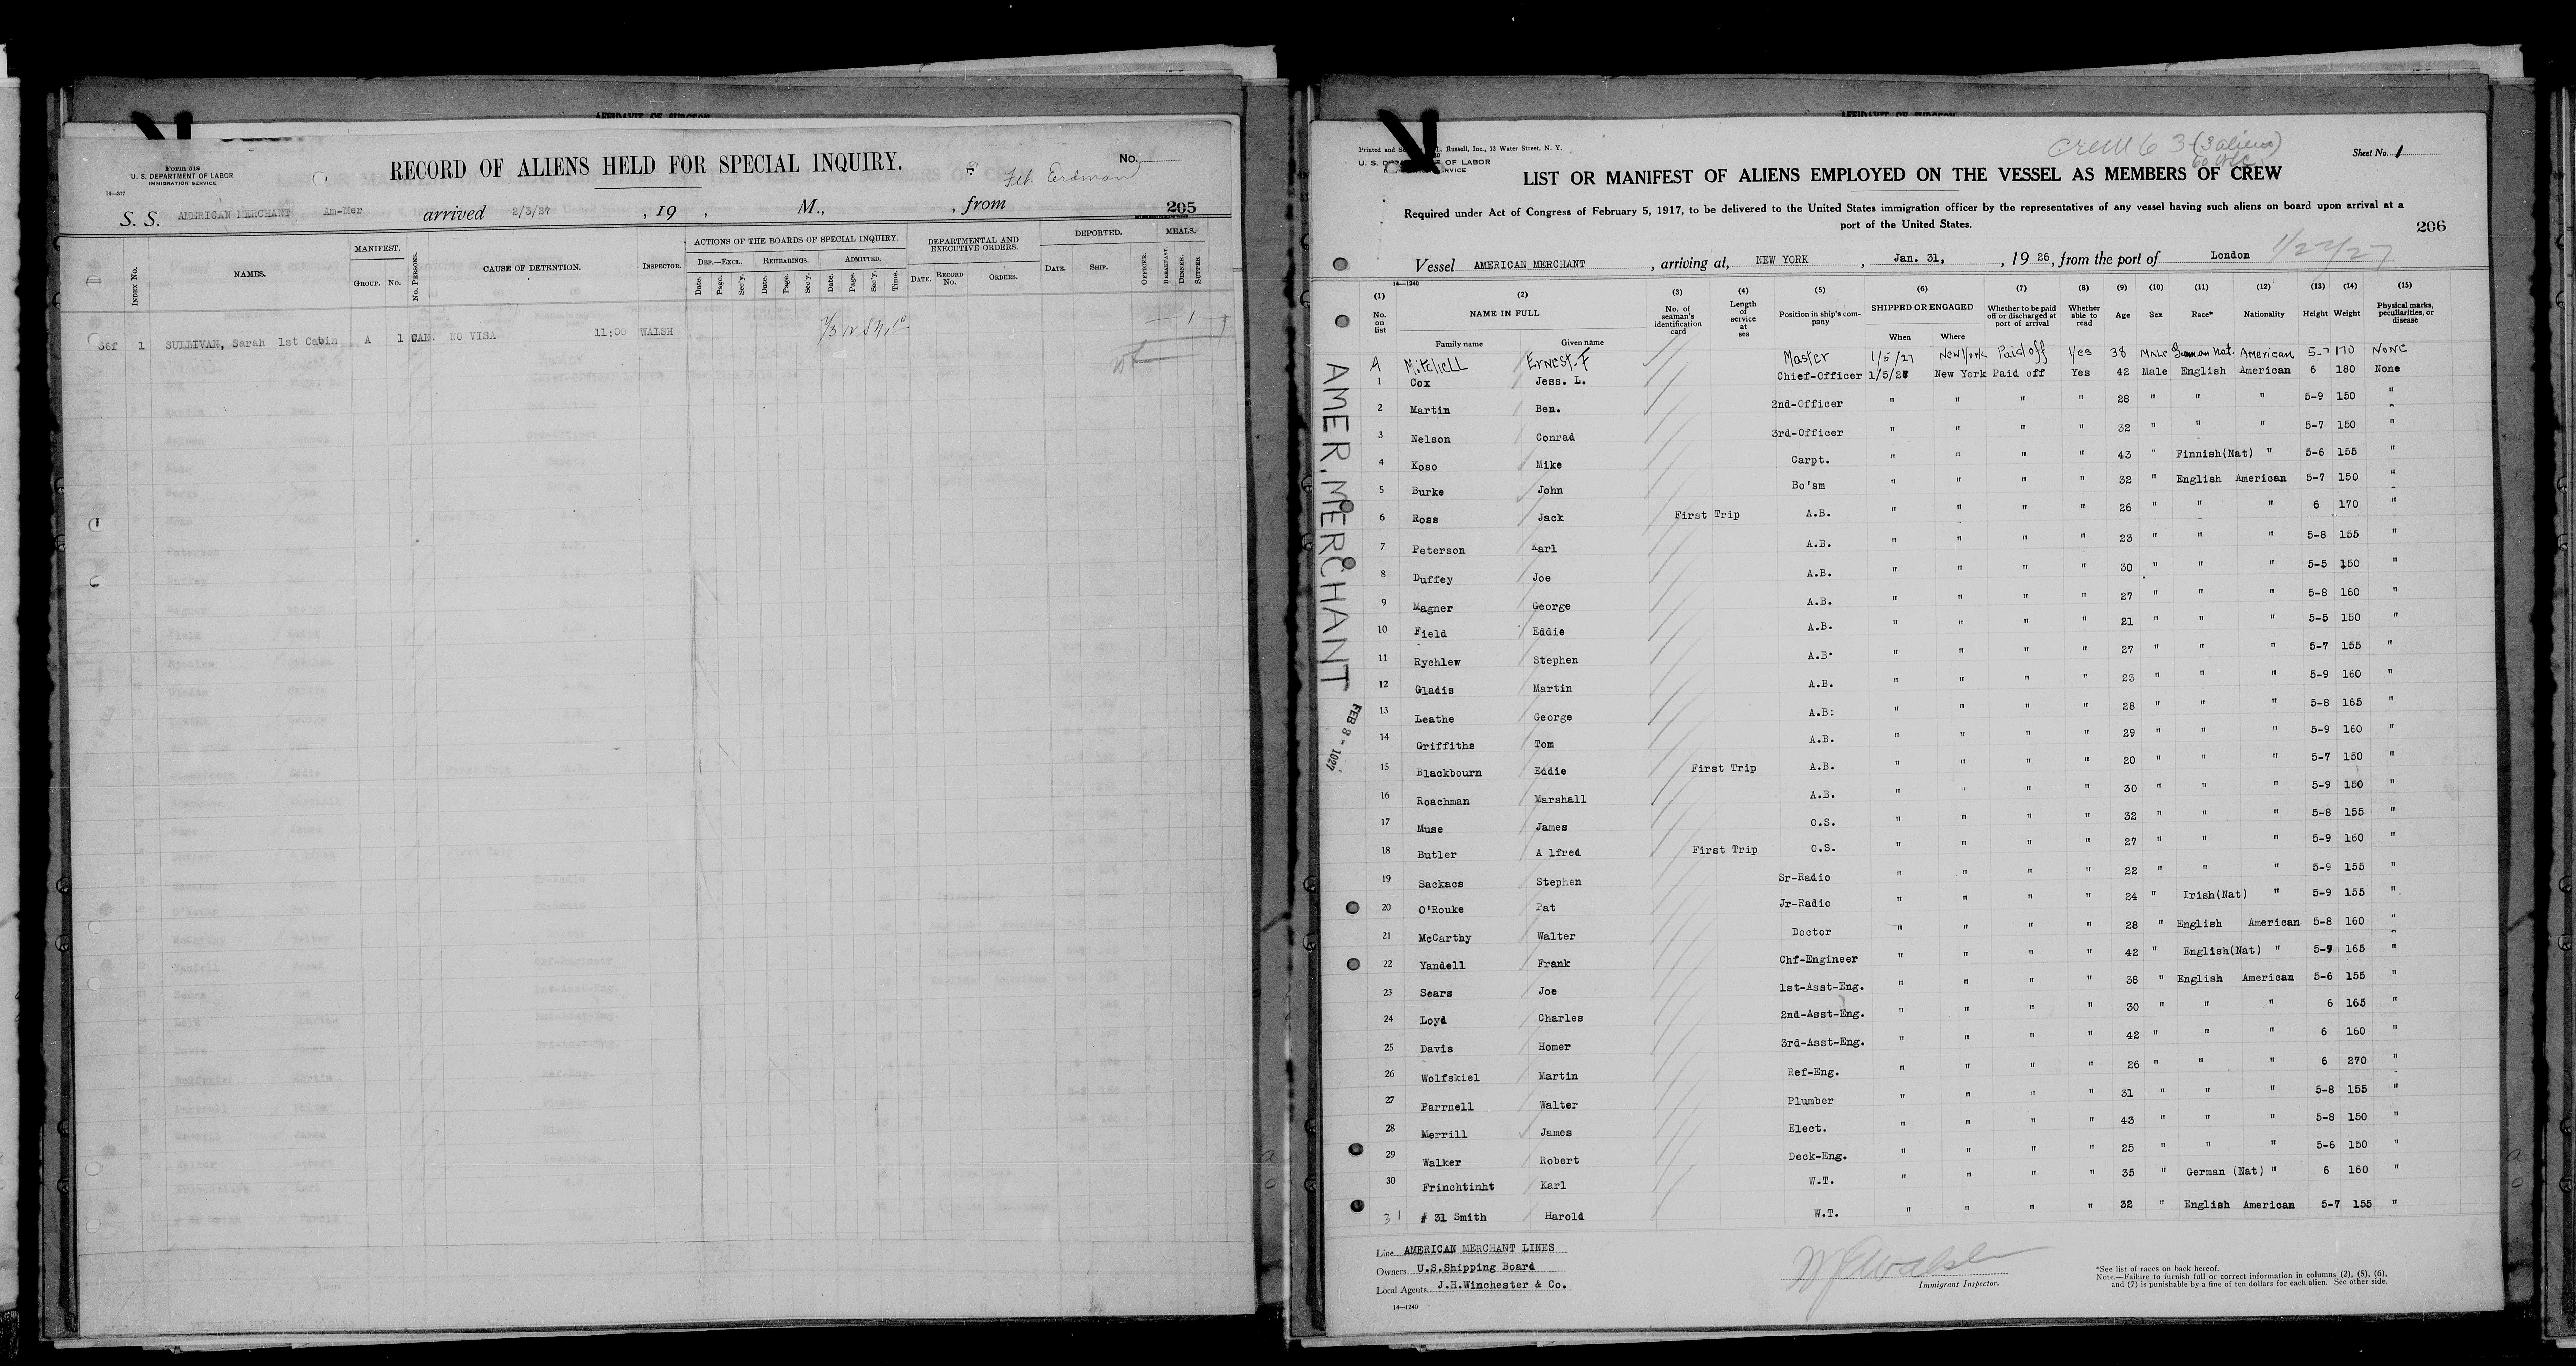 AFFIDAVIT OF SURGEON
Form 518
U. S. DEPARTMENT OF LABOR
IMMIGRATION SERVICE
14—377
RECORD OF ALIENS HELD FOR SPECIAL INQUIRY.
No.
Erdman
S. S. AMERICAN MERCHANT Am-Mer arrived 2/3/27 , 19 , M., , from
205
INDEX No. NAMES. MANIFEST. GROUP. No. No. PERSONS. CAUSE OF DETENTION. INSPECTOR. ACTIONS OF THE BOARDS OF SPECIAL INQUIRY. DEPARTMENTAL AND EXECUTIVE ORDERS. DEPORTED. MEALS.
DEF.—EXCL. REHEARINGS. ADMITTED.
Date. Page. Sec'y. Date. Page. Sec'y. Date. Page. Sec'y. Time. DATE. RECORD No. ORDERS. DATE. SHIP. OFFICER. BREAKFAST. DINNER. SUPPER.
1 SULLIVAN, Sarah 1st Cabin A 1 CAN. NO VISA 11:00 WALSH
AFFIDAVIT OF SURGEON
Printed and L. Russell, Inc., 13 Water Street, N. Y.
OF LABOR
Crew 63 (3 aliens)
Sheet No. 1
LIST OR MANIFEST OF ALIENS EMPLOYED ON THE VESSEL AS MEMBERS OF CREW
Required under Act of Congress of February 5, 1917, to be delivered to the United States immigration officer by the representatives of any vessel having such aliens on board upon arrival at a
port of the United States.
206
Vessel AMERICAN MERCHANT , arriving at, NEW YORK , Jan. 31, , 19 26, from the port of London 1/22/27
14—1240
(1) (2) (3) (4) (5) (6) (7) (8) (9) (10) (11) (12) (13) (14) (15)
No. on list NAME IN FULL Family name Given name No. of seaman's identification card Length of service at sea Position in ship's company SHIPPED OR ENGAGED When Where Whether to be paid off or discharged at port of arrival Whether able to read Age Sex Race* Nationality Height Weight Physical marks, peculiarities, or disease
A Mitchell Ernest F Master 1/5/27 New York Paid off Yes 38 Male nat. American 5-7 170 None
1 Cox Jess. L. Chief-Officer 1/5/27 New York Paid off Yes 42 Male English American 6 180 None
2 Martin Ben. 2nd-Officer " " " " 28 " " " 5-9 150 "
3 Nelson Conrad 3rd-Officer " " " " 32 " " " 5-7 150 "
4 Koso Mike Carpt. " " " " 43 " Finnish(Nat) " 5-6 155 "
5 Burke John Bo'sm " " " " 32 " English American 5-7 150 "
6 Ross Jack First Trip A.B. " " " " 26 " " " 6 170 "
7 Peterson Karl A.B. " " " " 23 " " " 5-8 155 "
8 Duffey Joe A.B. " " " " 30 " " " 5-5 150 "
9 Magner George A.B. " " " " 27 " " " 5-8 160 "
10 Field Eddie A.B. " " " " 21 " " " 5-5 150 "
11 Rychlew Stephen A.B. " " " " 27 " " " 5-7 155 "
12 Gladis Martin A.B. " " " " 23 " " " 5-9 160 "
13 Leathe George A.B. " " " " 28 " " " 5-8 165 "
14 Griffiths Tom A.B. " " " " 29 " " " 5-9 160 "
15 Blackbourn Eddie First Trip A.B. " " " " 20 " " " 5-7 150 "
16 Roachman Marshall A.B. " " " " 30 " " " 5-9 150 "
17 Muse James O.S. " " " " 32 " " " 5-8 155 "
18 Butler A lfred First Trip O.S. " " " " 27 " " " 5-9 160 "
19 Sackacs Stephen Sr-Radio " " " " 22 " " " 5-9 155 "
20 O'Rouke Pat Jr-Radio " " " " 24 " Irish(Nat) " 5-9 155 "
21 McCarthy Walter Doctor " " " " 28 " English American 5-8 160 "
22 Yandell Frank Chf-Engineer " " " " 42 " English(Nat) " 5-9 165 "
23 Sears Joe 1st-Asst-Eng. " " " " 38 " English American 5-6 155 "
24 Loyd Charles 2nd-Asst-Eng. " " " " 30 " " " 6 165 "
25 Davis Homer 3rd-Asst-Eng. " " " " 42 " " " 6 160 "
26 Wolfskiel Martin Ref-Eng. " " " " 26 " " " 6 270 "
27 Parrnell Walter Plumber " " " " 31 " " " 5-8 155 "
28 Merrill James Elect. " " " " 43 " " " 5-8 150 "
29 Walker Robert Deck-Eng. " " " " 25 " " " 5-6 150 "
30 Frinchtinht Karl W.T. " " " " 35 " German (Nat) " 6 160 "
31 # 31 Smith Harold W.T. " " " " 32 " English American 5-7 155 "
AMER. MERCHANT
FEB 8 - 1927
Line AMERICAN MERCHANT LINES
Owners U.S.Shipping Board
Local Agents J.H.Winchester & Co.
14—1240
Walsh
Immigrant Inspector.
*See list of races on back hereof.
Note.—Failure to furnish full or correct information in columns (2), (5), (6),
and (7) is punishable by a fine of ten dollars for each alien. See other side.